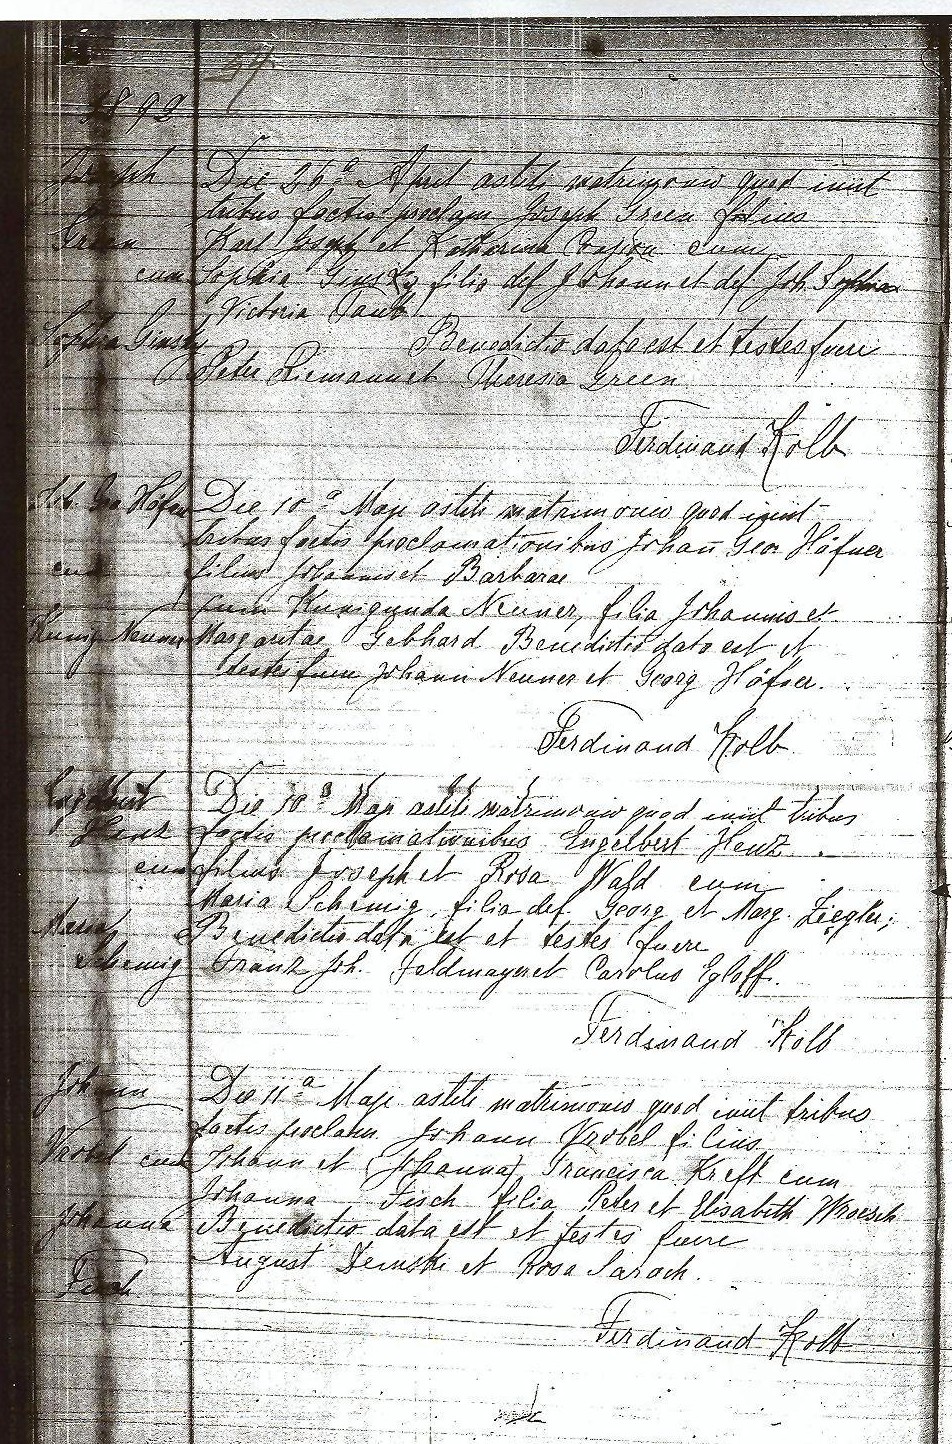 1892
Joseph
Green
cum
Sophia Ginsky
Die 26a April astiti matrimonio quod iniit
tribus factis proclam Joseph Green filius
Karl Joseph et Katharina cum
Sophia Ginsky filia def Johann et def Joh. Sophia
Victoria
Benedictio data est et testes fuere
Peter Riemann et Theresia Green
Ferdinand Kolb
Joh. Geo Häfner
cum
Kunig Neuner
Die 10a Maje astiti matrimonio quod iniit
tribus factis proclamationibus Johann Geor Häfner
filius Johannis et Barbarae
cum Kunigunda Neuner, filia Johannis et
Margaritae Gebhard Benedictio data est et
testes fuere Johann Neuner et Georg Häfner.
Ferdinand Kolb
Engelbert
Henz
cum
Maria
Schemig
Die 10a Maje astiti matrimonio quod iniit tribus
factis proclamationibus Engelbert Henz
filius Joseph et Rosa Wald cum
Maria Schemig, filia def. Georg et Marg. Ziegler;
Benedictio data est et testes fuere
Franz Joh. Feldmayer et Carolus Egloff.
Ferdinand Kolb
Johann
Vrobel cum
Johanna
Tisch
Die 11a Maje astiti matrimonio quod iniit tribus
factis proclam Johann Vrobel filius
Johann et (Johanna) Francisca Kreft cum
Johanna Tisch filia Peter et Elisabeth Wroesch
Benedictio data est et testes fuere
August Demski et Rosa Sarach.
Ferdinand Kolb